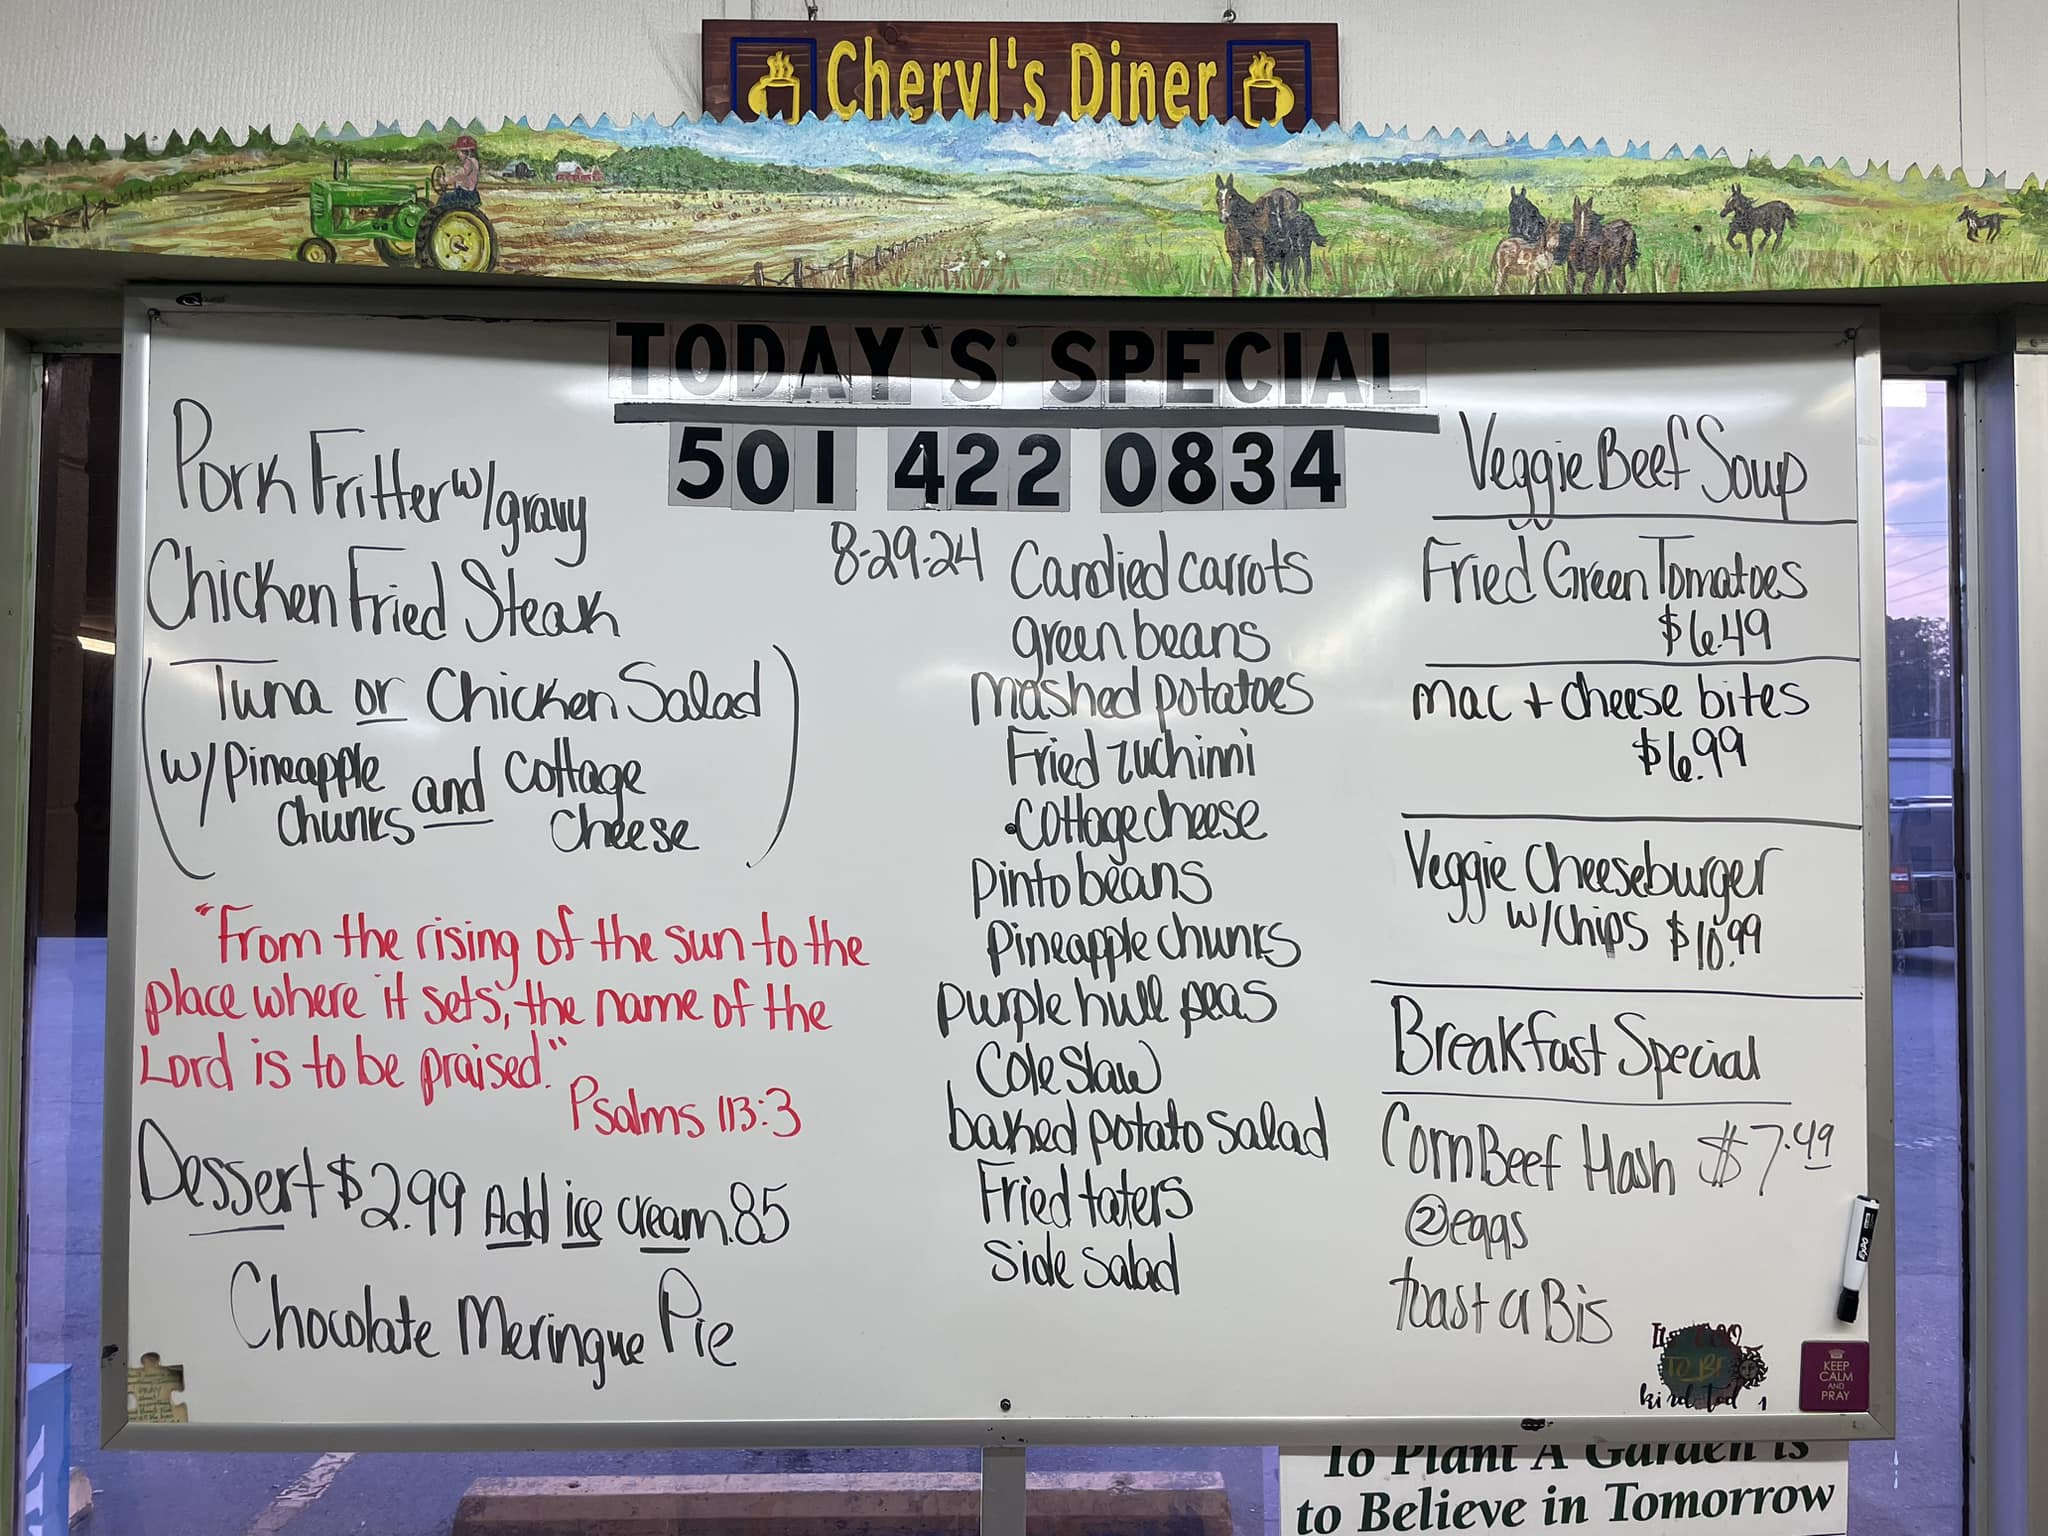 Cheryl's Diner
TODAY'S SPECIAL
501 422 0834
8-29-24
Pork Fritter w/gravy
Chicken Fried Steak
(Tuna or Chicken Salad
w/Pineapple Chunks and Cottage Cheese)
"From the rising of the sun to the
place where it sets, the name of the
Lord is to be praised."
Psalms 113:3
Dessert $2.99 Add ice cream .85
Chocolate Meringue Pie
Candied carrots
green beans
mashed potatoes
Fried zuchinni
Cottage cheese
Pinto beans
Pineapple chunks
Purple hull peas
Cole slaw
baked potato salad
Fried taters
Side salad
Veggie Beef Soup
Fried Green Tomatoes
$6.49
mac + cheese bites
$6.99
Veggie Cheeseburger
w/chips $10.99
Breakfast Special
Corn Beef Hash $7.49
② eggs
toast or Bis
EXPO
TO BE
kind
KEEP
CALM
AND
PRAY
To Plant A Garden is
to Believe in Tomorrow